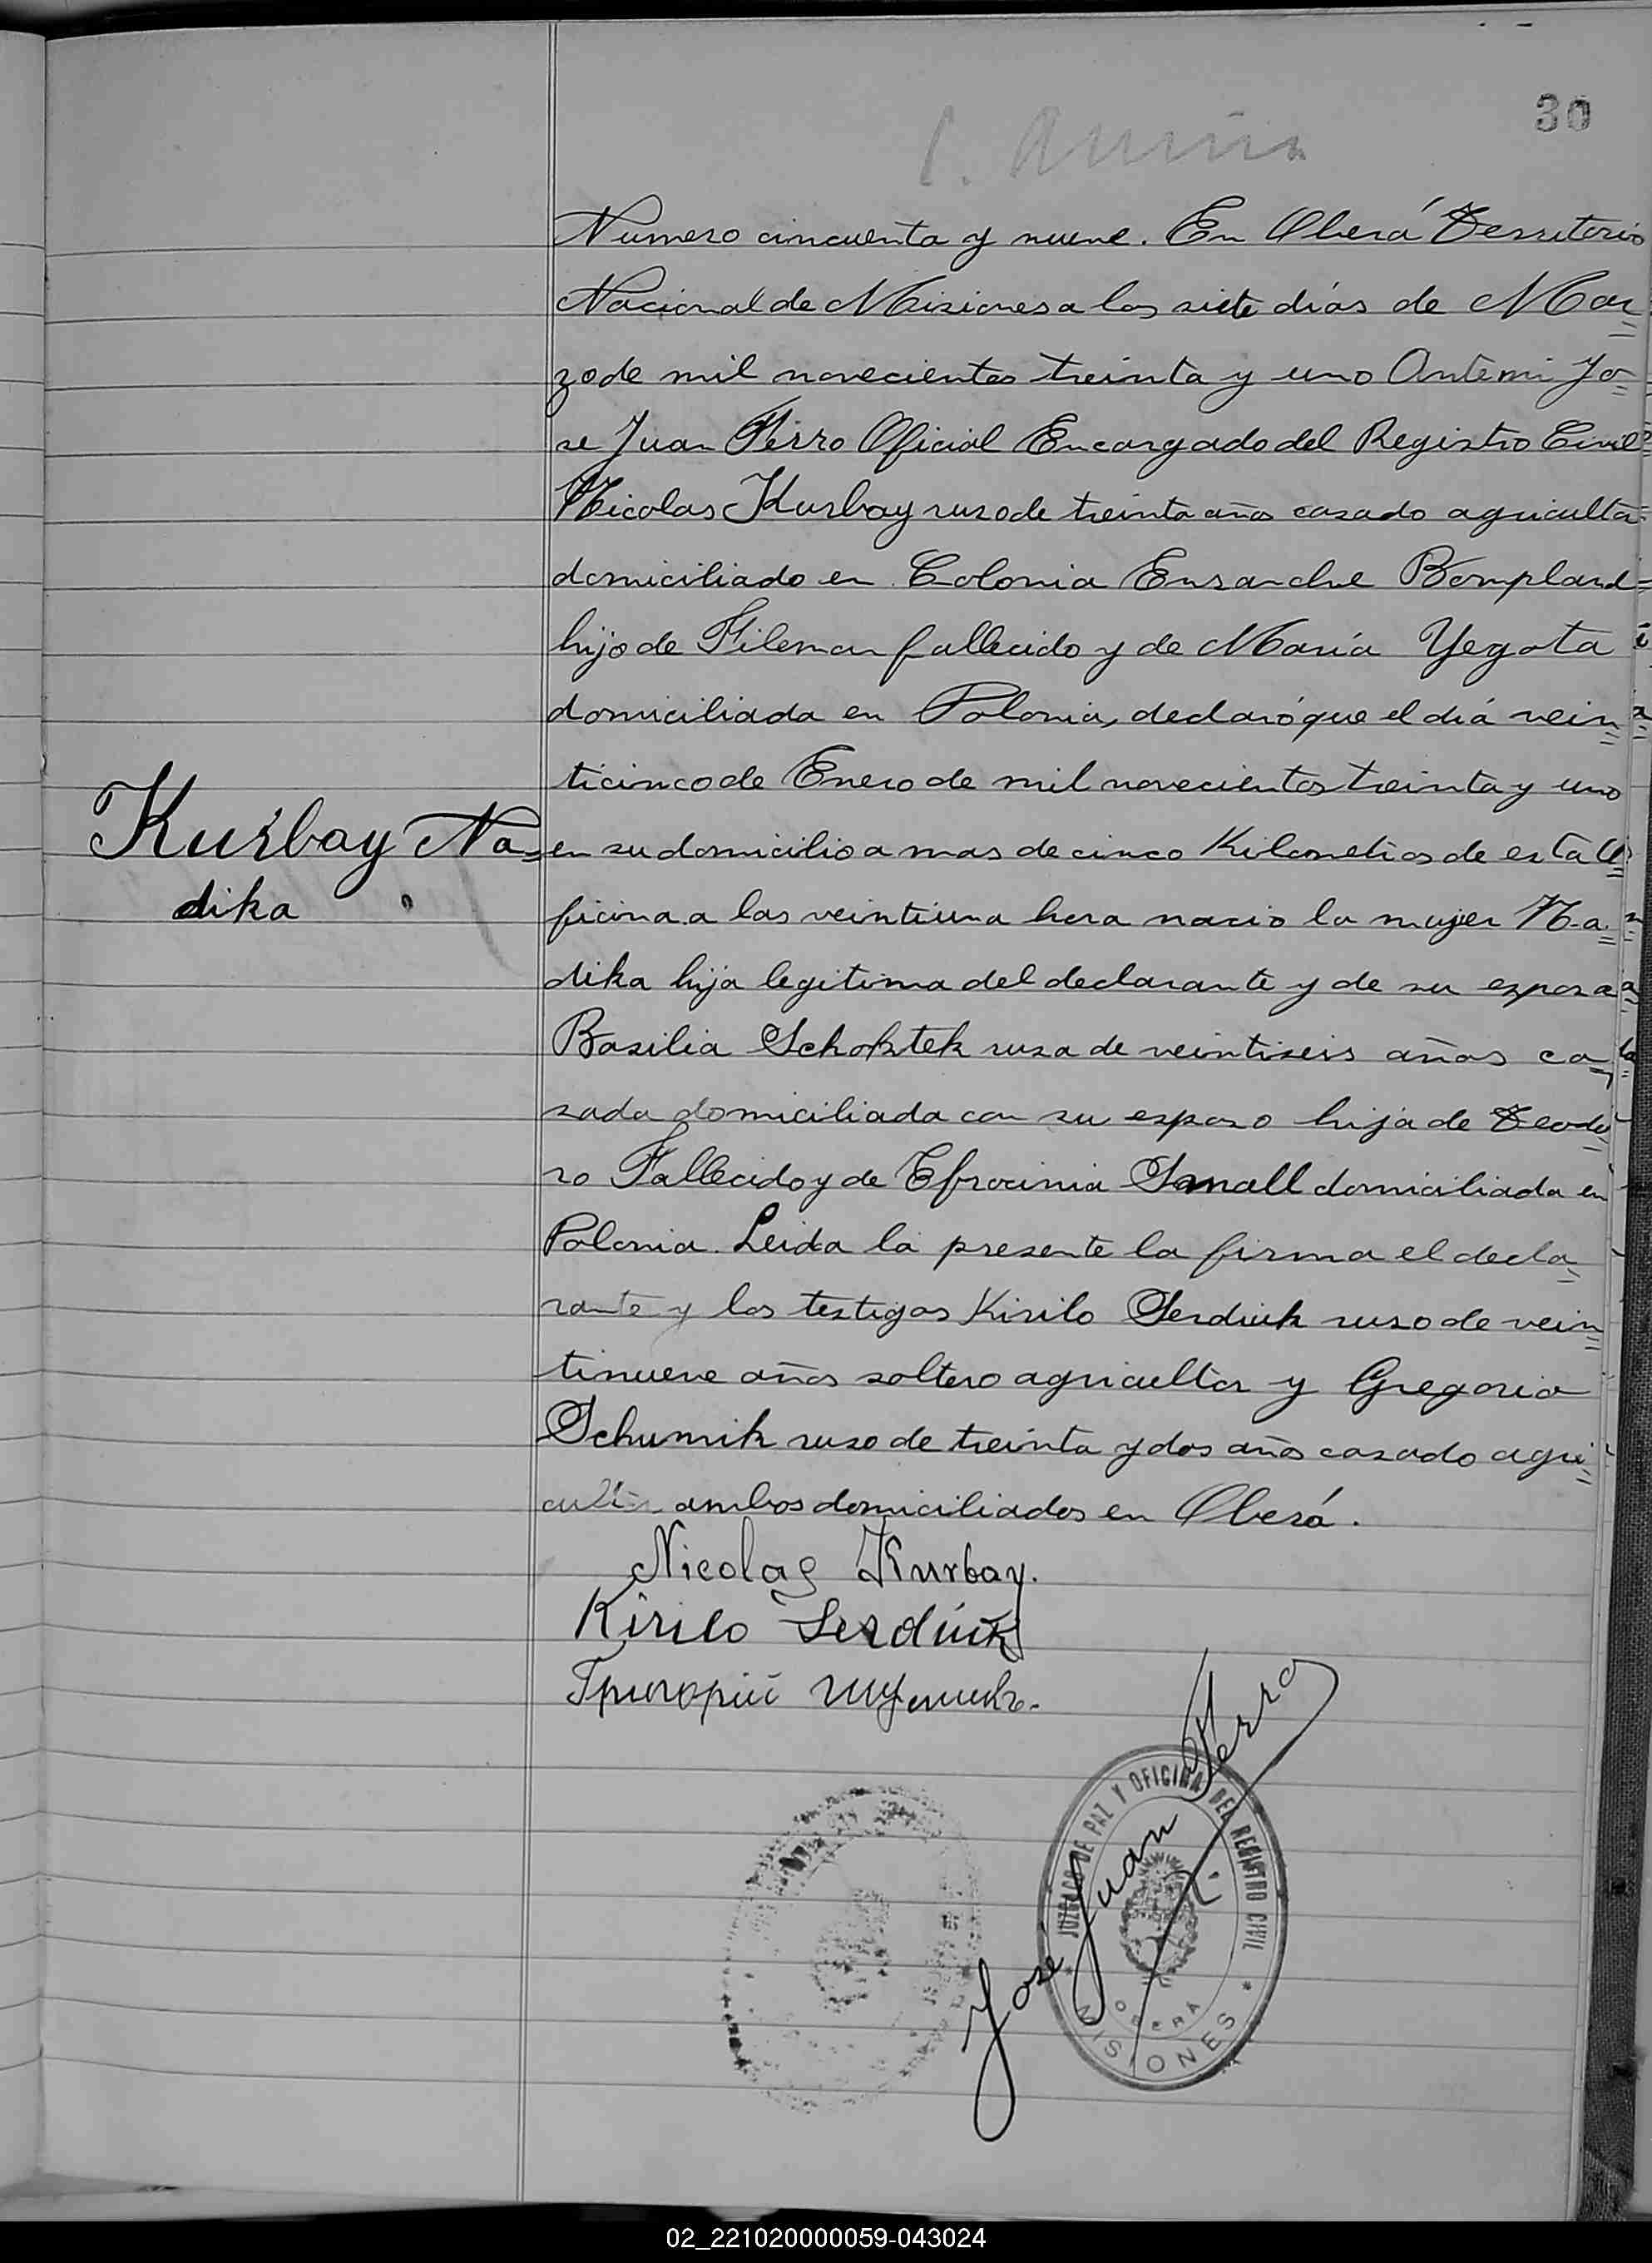 30
Numero cincuenta y nueve. En Oberá Territorio
Nacional de Misiones a los siete días de Mar=
zo de mil novecientos treinta y uno Ante mi Jo=
se Juan Ferro Oficial Encargado del Registro Civil
Nicolas Kurbay ruso de treinta años casado agricultor
domiciliado en Colonia Ensanche Bompland=
hijo de Fileman fallecido y de María Yegota
domiciliada en Polonia, declaró que el diá vein=
ticinco de Enero de mil novecientos treinta y uno
Kurbay Na=
dika
en su domicilio a mas de cinco Kilometros de esta O=
ficina a las veintiuna hora nacio la mujer Na=
dika hija legitima del declarante y de su esposa
Basilia Schoktek rusa de veintiseis años ca=
sada domiciliada con su esposo hija de Teodo=
ro Fallecido y de Efrocinia Small domiciliada en
Polonia. Leida la presente la firma el decla=
rante y los testigos Kirilo Serdiuk ruso de vein=
tinueve años soltero agricultor y Gregorio
Schumik ruso de treinta y dos años casado agri=
cultor ambos domiciliados en Oberá.
Nicolas Kurbay.
Kirilo Serdiuk
Григорий Шумикъ.
José Juan Ferro
JUZGADO DE PAZ Y OFICINA DEL REGISTRO CIVIL
OBERA
* MISIONES *
02_221020000059-043024